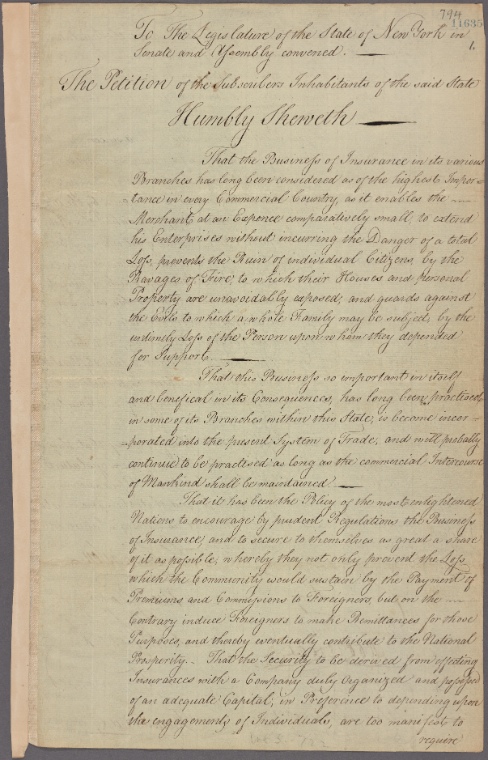 794
11635
To The Legislature of the State of New York in
1.
Senate and Assembly convened. —
The Petition of the Subscribers Inhabitants of the said State
Humbly Sheweth —
That the Business of Insurance in its various
Branches has long been considered as of the highest Impor-
-tance in every Commercial Country, as it enables the —
Merchant, at an Expence comparatively small, to extend
his Enterprises without incurring the Danger of a total
Loss, prevents the Ruin of individual Citizens, by the
Ravages of Fire, to which their Houses and personal
Property are unavoidably exposed, and guards against
the Evils to which a whole Family may be subject, by the
untimely Loss of the Person upon whom they depended
for Support. —
That this Business so important in itself
and beneficial in its Consequences, has long been practised
in some of its Branches within this State, is become incor-
-porated into the present System of Trade, and will probably
continue to be practised as long as the commercial Intercourse
of Mankind shall be maintained —
That it has been the Policy of the most enlightened
Nations to encourage by prudent Regulations the Business
of Insurance, and to secure to themselves as great a share
of it as possible; whereby they not only prevent the Loss,
which the Community would sustain by the Payment of
Premiums and Commissions to Foreigners, but on the —
Contrary induce Foreigners to make Remittances for those
Purposes, and thereby eventually contribute to the National
Prosperity. That the Security to be derived from effecting
Insurances with a Company duly Organized and possessed
of an adequate Capital, in Preference to depending upon
the engagements of Individuals, are too manifest to
require